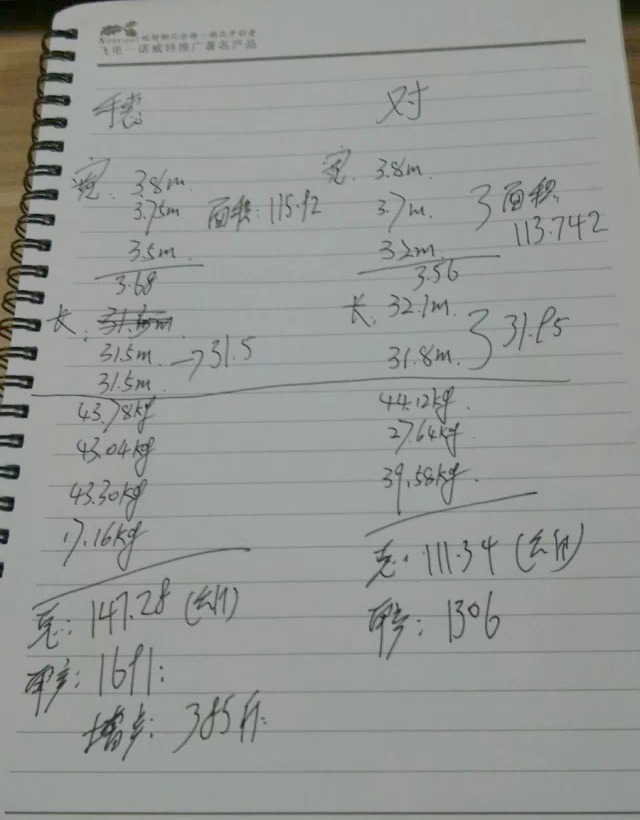 飞宅—诺威特推广著名产品
对
宽: 3.8m.
3.75m 面积: 115.92
3.5m.
3.68
长:
31.5m →31.5
31.5m.
宽. 3.8m.
3.7m. 面积
113.742
3.2m
3.56
长. 32.1m.
31.95
31.8m.
43.78kg
43.04kg
43.30kg
17.16kg
44.12kg.
27.64kg.
39.58kg.
147.28
亩产: 1691:
增产: 385斤:
111.34
亩产: 1306